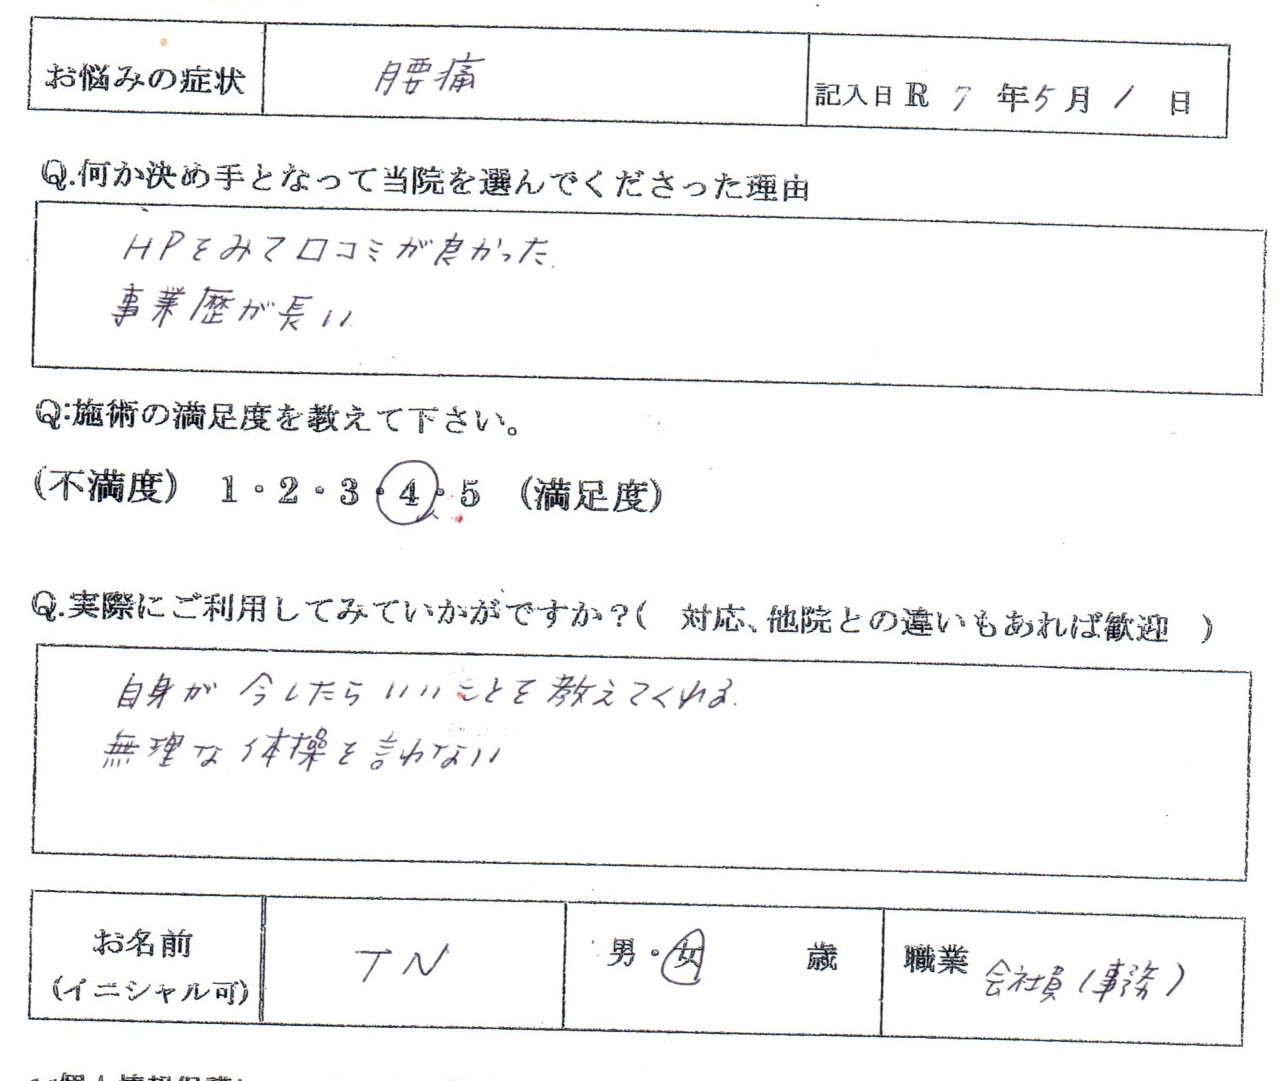 お悩みの症状 腰痛 記入日 R 7 年 5 月 1 日
Q.何か決め手となって当院を選んでくださった理由
HPをみて口コミが良かった.
事業歴が長い
Q:施術の満足度を教えて下さい。
(不満度) 1・2・3・4・5 (満足度)
Q.実際にご利用してみていかがですか?( 対応、他院との違いもあれば歓迎 )
自身が今したらいいことを教えてくれる.
無理な体操を言わない
お名前 TN 男・女 歳 職業 会社員(事務)
(イニシャル可)